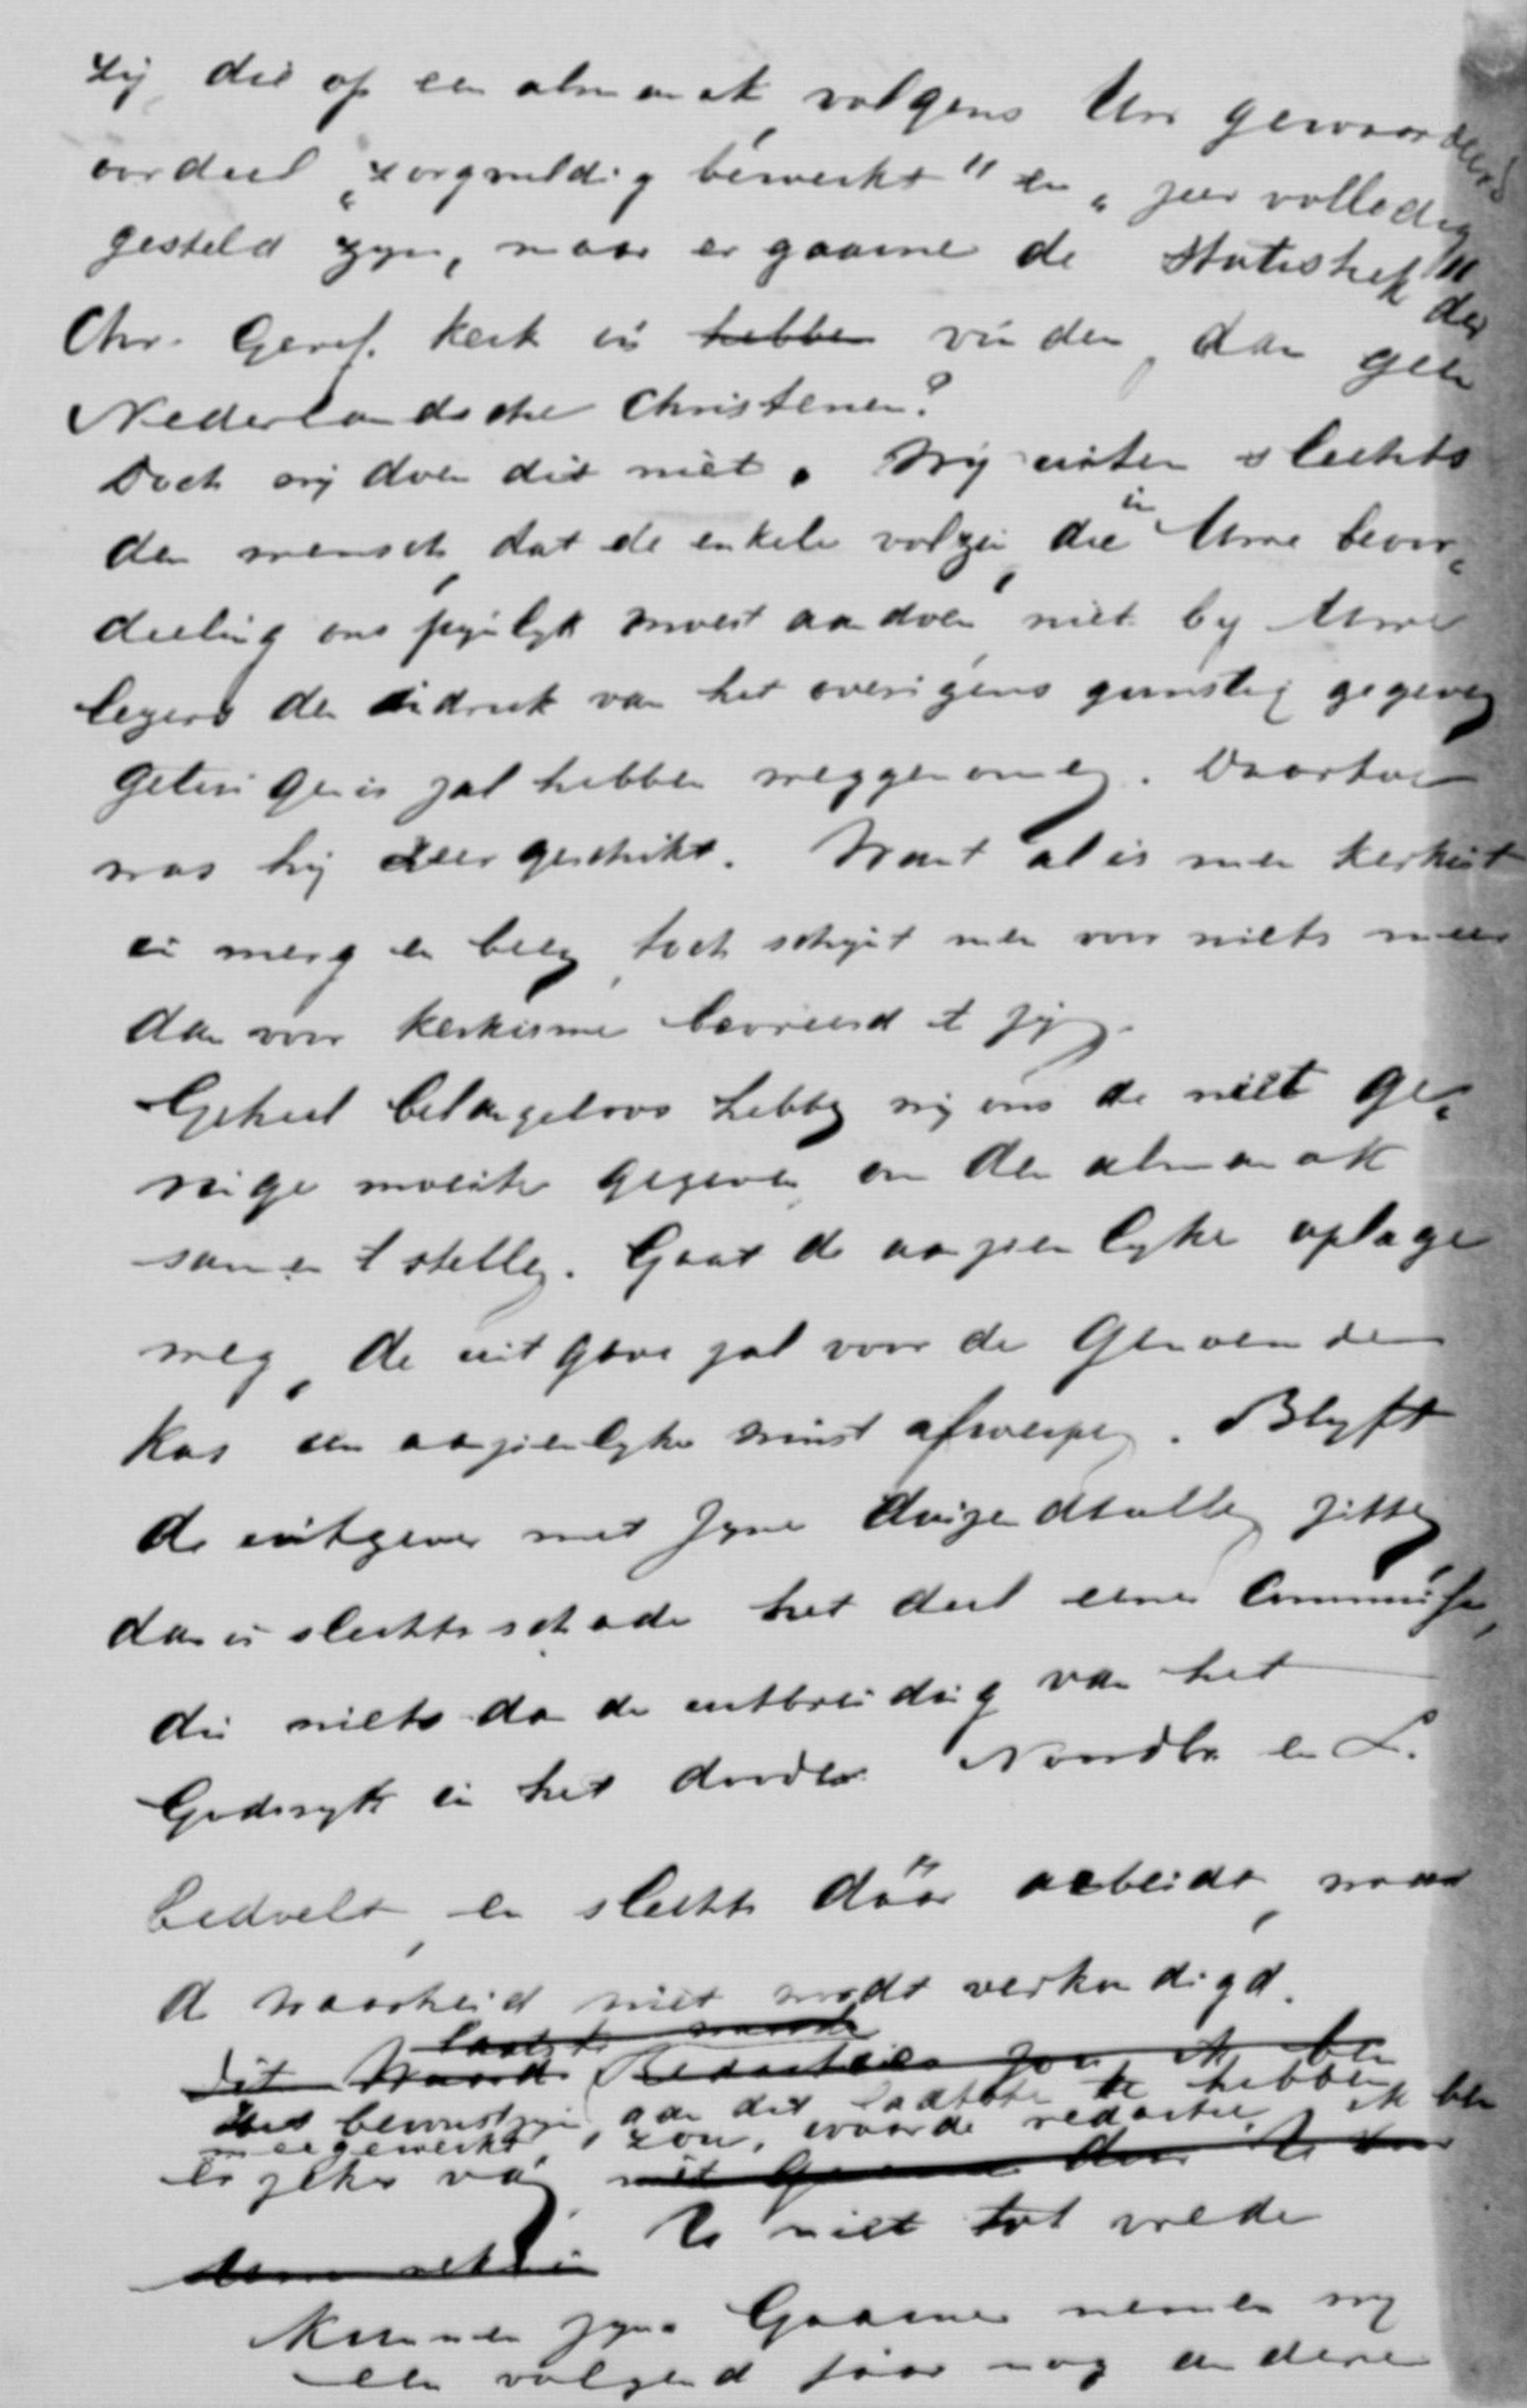 zij die op een almanak, volgens Uw gewaardeerd
oordeel „zorgvuldig bewerkt" en „zeer volledig"
gesteld zyn, maar er gaarne de statistiek der
Chr. Geref. kerk in hebben vinden, dan geen
Nederlandsche Christenen?
Doch wij doen dit niet. Wij uiten slechts
den wensch, dat de enkele volzin, die in Uwe beoor„
deeling ons pynlyk moest aandoen, niet by Uwe
lezers den indruk van het overigens gunstig gegeven
getuigenis zal hebben weggenomen. Daartoe
was hij zeer geschikt. Want al is men kerkist
in merg en been, toch schynt men voor niets meer
dan voor kerkisme bevreesd te zijn.
Geheel belangeloos hebben wij ons de niet ge„
ringe moeite gegeven, om den almanak
samen te stellen. Gaat de aanzienlyke oplage
weg, de uitgave zal voor de Genoemde
Kas een aanzienlyke winst afwerpen. Blyft
de uitgever met zyne duizendtallen zitten
dan is slechts schade het deel eener Commissie,
die niets dan de uitbreiding van het
Godsryk in het donker Noordbr. en L.
bedoelt, en slechts dáár arbeidt, waar
de waarheid niet wordt verkondigd.
laatste waarde
Dit Waarde Redactie zou, ik ben
Het bewustzyn, aan dit laatste te hebben
meegewerkt, zou, waarde redactie, ik ben
er zeker van, niet
U niet tot vrede
Kunnen zyn. Gaarne nemen wij
een volgend jaar nog andere